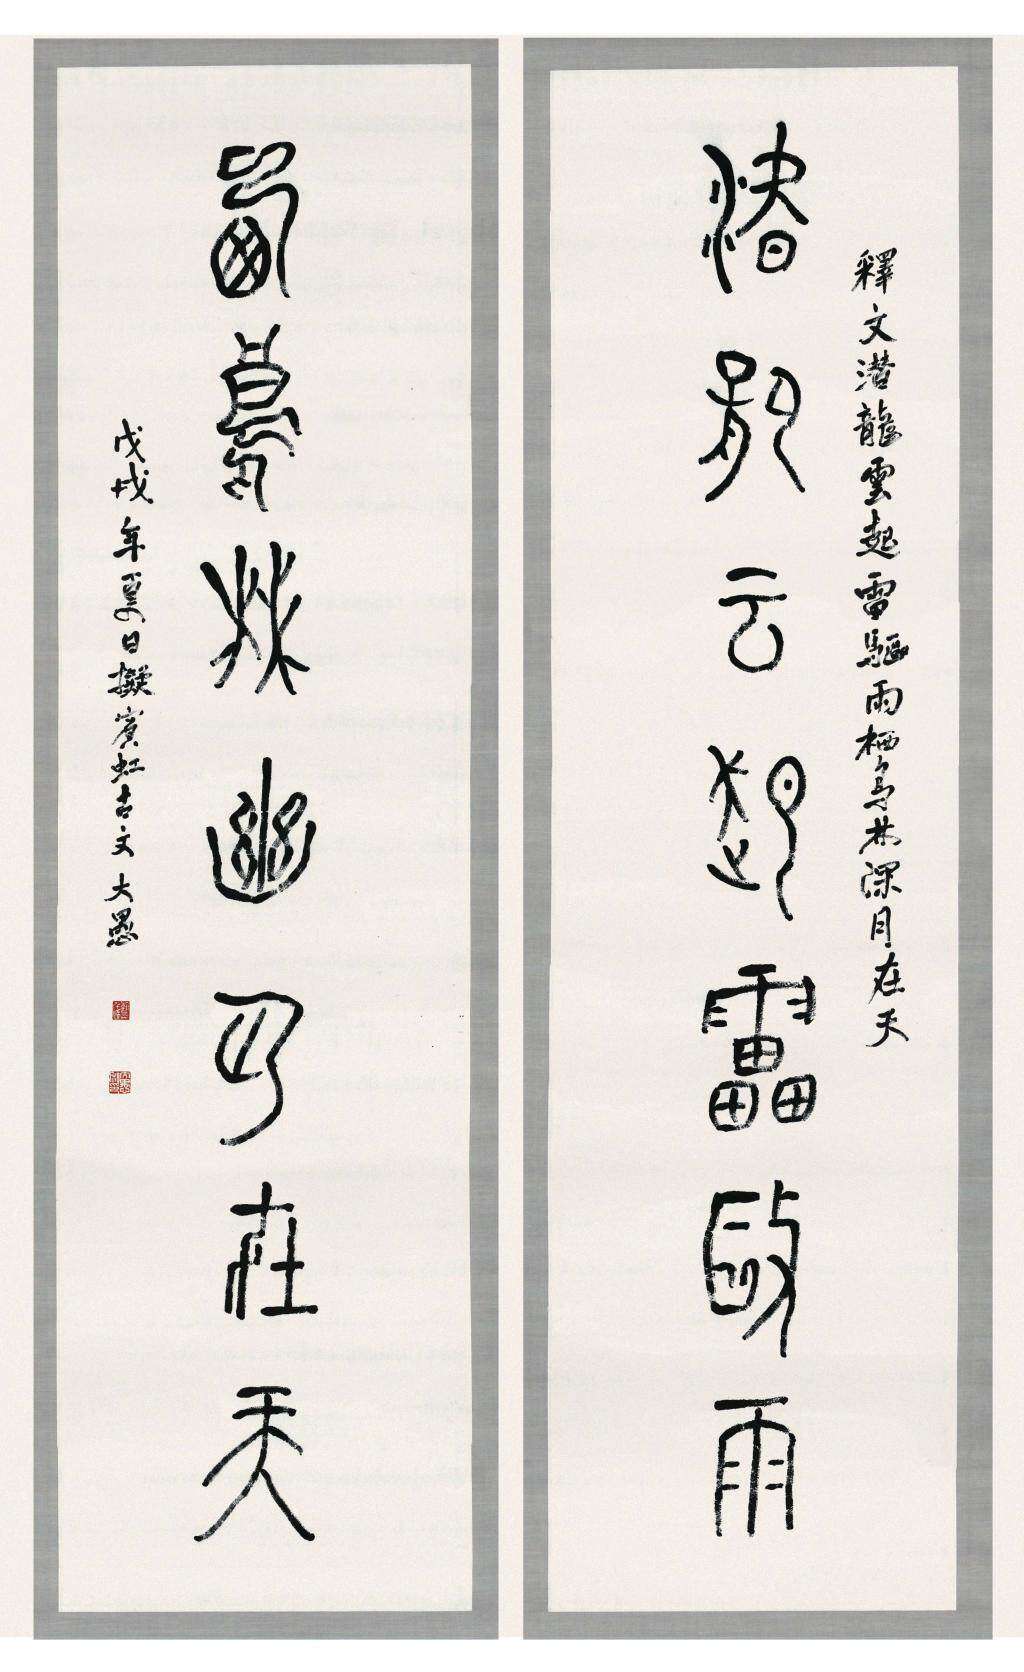 釋文潜龍雲起雷驅雨栖鳥林深月在天
潜龍云起靁敺雨
鳥林幽月在天
戊戌年夏日擬賓虹古文大愚